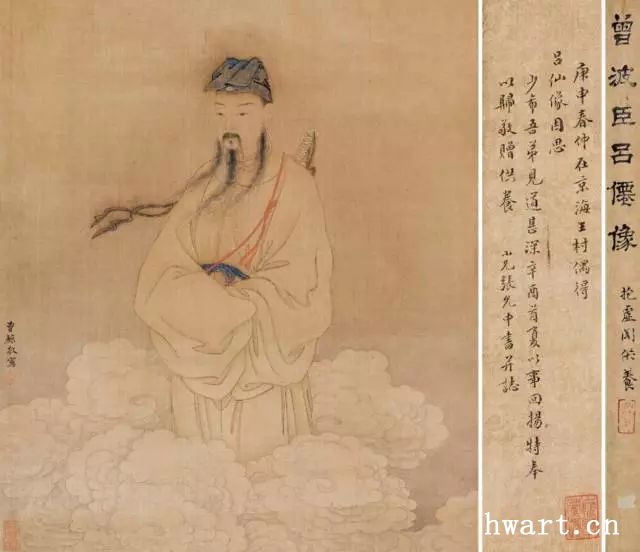 曾波臣呂僊像
抱虛閣供養
庚申春仲在京海王村偶得
呂仙像因思
少希吾弟見道甚深辛酉首夏以事回揚特奉
以歸敬贈供養
小兄張允中書并誌
曾鯨敬寫
hwart.cn